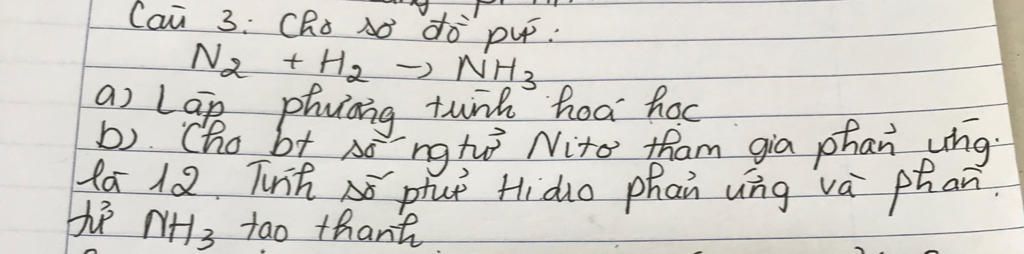 Câu 3: Cho sơ đồ pứ:
N2 + H2 → NH3
a) Lập phương trình hoá học
b). Cho bt số ngtử Nitơ tham gia phản ứng
là 12. Tính số ptử Hidro phản ứng và phân
tử NH3 tạo thành